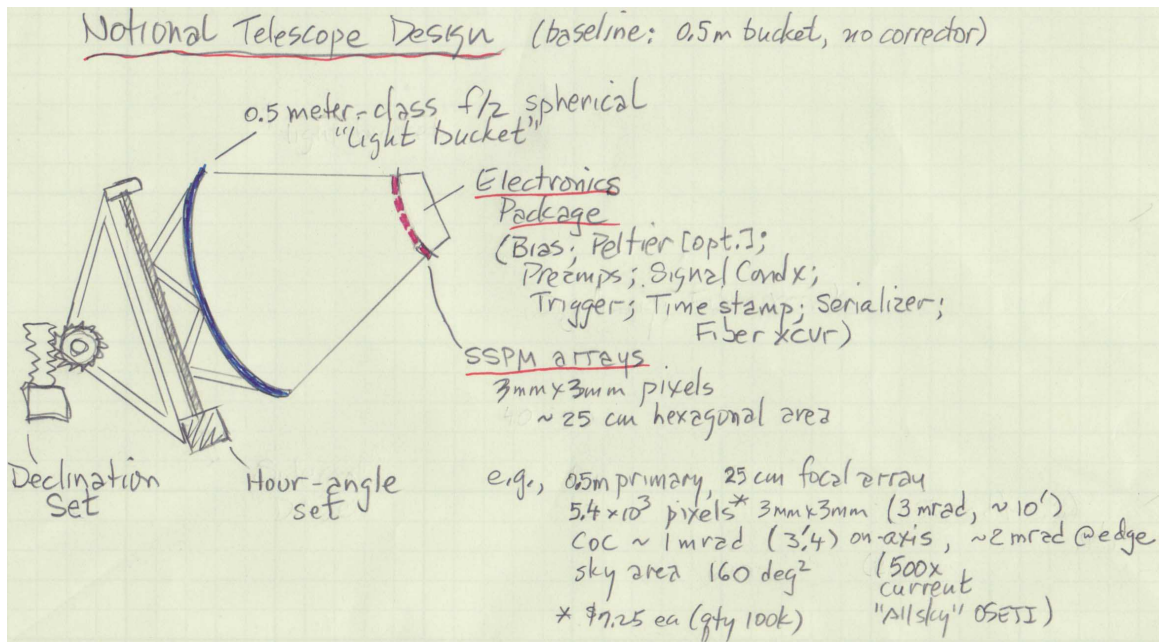 Notional Telescope Design (baseline: 0.5m bucket, no corrector)
0.5 meter-class f/2 spherical
"light bucket"
Electronics
Package
(Bias; Peltier [opt.];
Preamps; Signal Cond x;
Trigger; Time stamp; Serializer;
Fiber xcvr)
SSPM arrays
3mm x 3mm pixels
~ 25 cm hexagonal area
Declination
Set
Hour-angle
set
e.g., 0.5m primary, 25 cm focal array
5.4 x 10³ pixels* 3mm x 3mm (3 mrad, ~10')
CoC ~ 1 mrad (3'.4) on-axis, ~2 mrad @ edge
sky area 160 deg² (500x
current
"Allsky" OSETI)
* $7.25 ea (qty 100k)